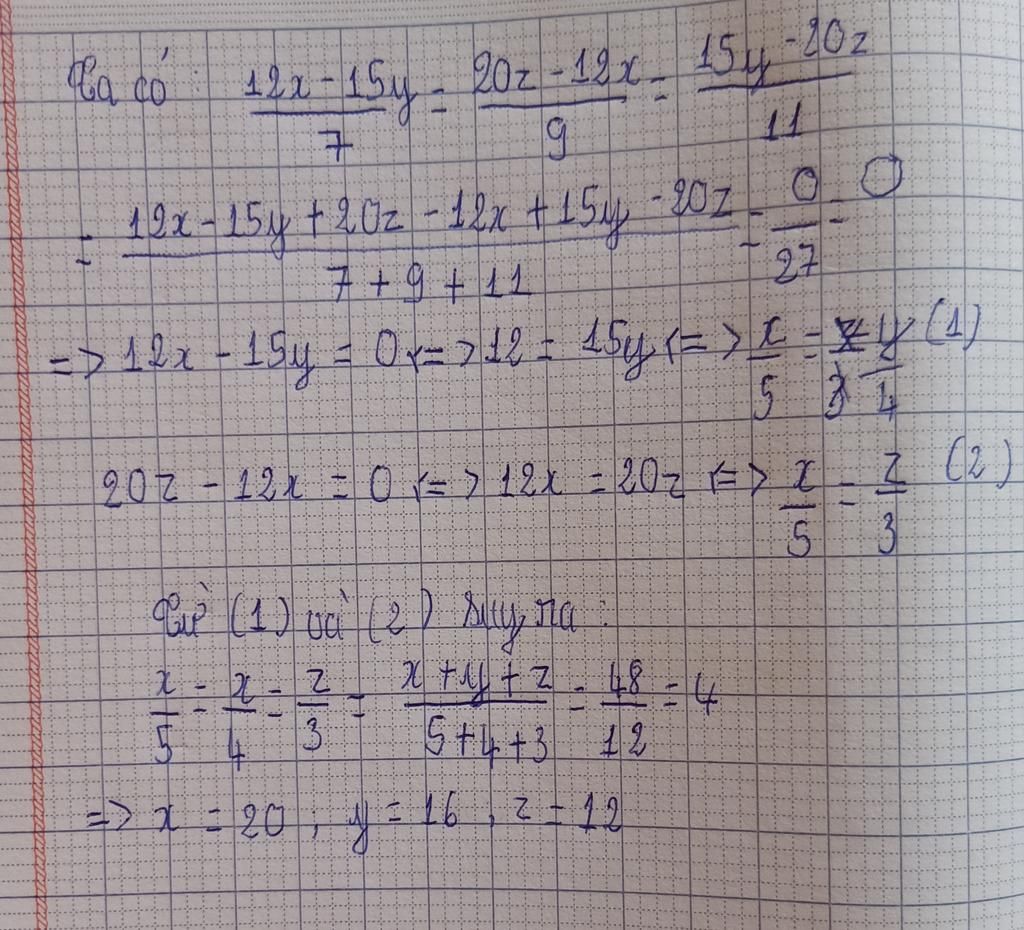 Ta có: (12x - 15y)/7 = (20z - 12x)/9 = (15y - 20z)/11
= (12x - 15y + 20z - 12x + 15y - 20z)/(7 + 9 + 11) = 0/27 = 0
=> 12x - 15y = 0 <=> 12 = 15y <=> x/5 = y/4 (1)
20z - 12x = 0 <=> 12x = 20z <=> x/5 = z/3 (2)
Từ (1) và (2) suy ra:
x/5 = x/4 = z/3 = (x + y + z)/(5 + 4 + 3) = 48/12 = 4
=> x = 20, y = 16, z = 12